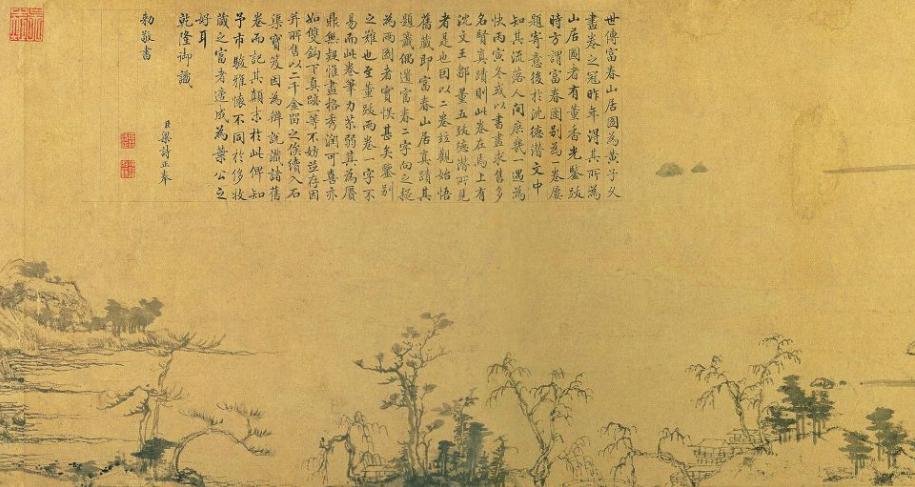 世傳富春山居圖為黃子久
畫卷之冠昨年得其所為
山居圖者有董香光鑒跋
時方謂富春圖別為一卷屢
題寄意後於沈德潛文中
知其流落人間庶幾一遇為
快丙寅冬或以書畫求售多
名賢真蹟則此卷在焉上有
沈文王鄒董五跋德潛所見
者是也因以二卷竝觀始悟
舊藏即富春山居真蹟其
題籤偶遺富春二字向之疑
為兩圖者實悞甚矣鑒別
之難也至董跋兩卷一字不
易而此卷筆力苶弱其為贗
鼎無疑惟畫格秀潤可喜亦
如雙鈎下真蹟一等不妨並存因
并所售以二千金留之俟續入石
渠寶笈因為辨說識諸舊
卷而記其顛末於此俾知
予市駿雅懷不同於侈收
藏之富者適成為葉公之
好耳
乾隆御識
臣梁詩正奉
勅敬書